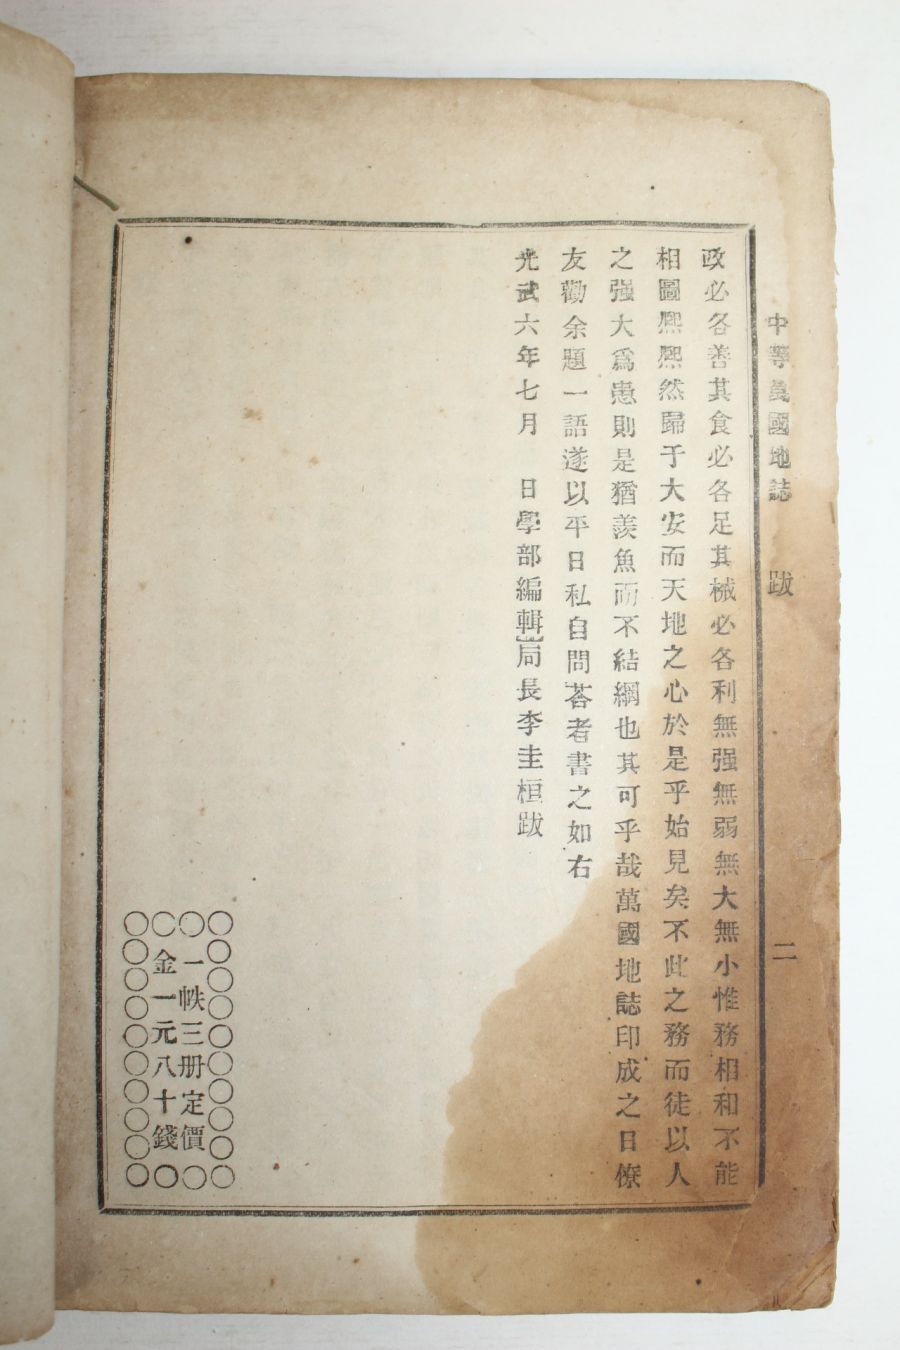 中等萬國地誌 跋 二
政必各善其食必各足其械必各利無强無弱無大無小惟務相和不能
相圖熙熙然歸于大安而天地之心於是乎始見矣不此之務而徒以人
之强大爲患則是猶羨魚而不結網也其可乎哉萬國地誌印成之日僚
友勸余題一語遂以平日私自問答者書之如右
光武六年七月 日學部編輯局長李圭桓跋
一帙三册定價
金一元八十錢